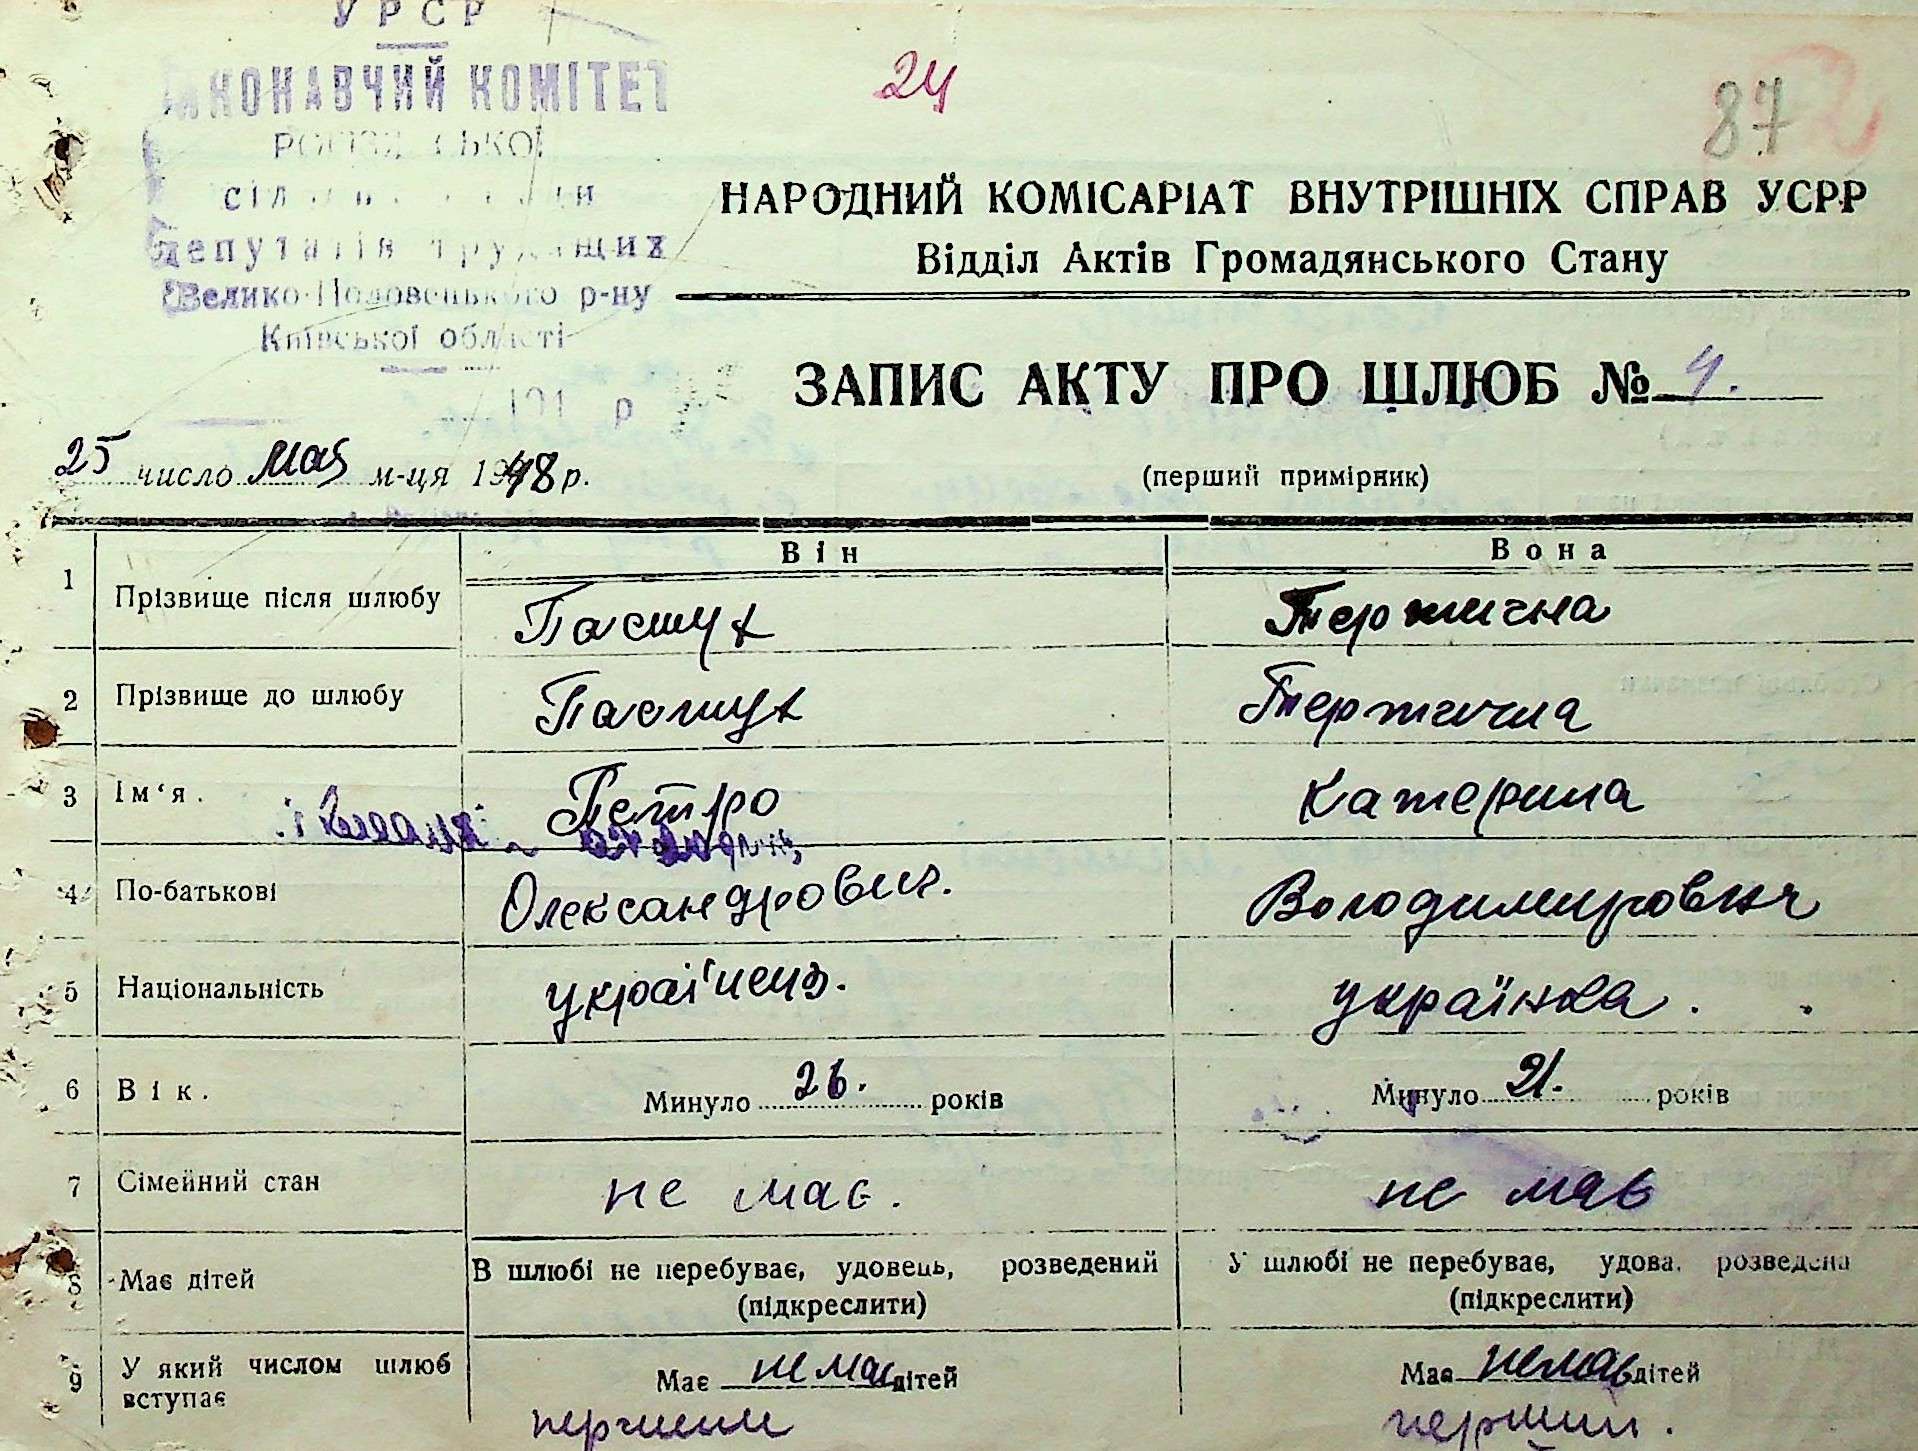 УРСР
ВИКОНАВЧИЙ КОМІТЕТ
депутатів трудящих
Велико-Половецького р-ну
Київської області
194 р
24
87
НАРОДНИЙ КОМІСАРІАТ ВНУТРІШНІХ СПРАВ УСРР
Відділ Актів Громадянського Стану
ЗАПИС АКТУ ПРО ШЛЮБ № 4.
25 число мая м-ця 1948 р.
(перший примірник)
Він Вона
1 Прізвище після шлюбу Пастух Тертична
2 Прізвище до шлюбу Пастух Тертична
3 Ім‘я. Петро Катерина
4 По-батькові Олександрович. Володимирович
5 Національність українец. українка.
6 Вік. Минуло 26. років Минуло 21. років
7 Сімейний стан не має. не має
8 Має дітей В шлюбі не перебуває, удовець, розведений У шлюбі не перебуває, удова, розведена
(підкреслити) (підкреслити)
9 У який числом шлюб вступає Має не має дітей Має немає дітей
перший перший.